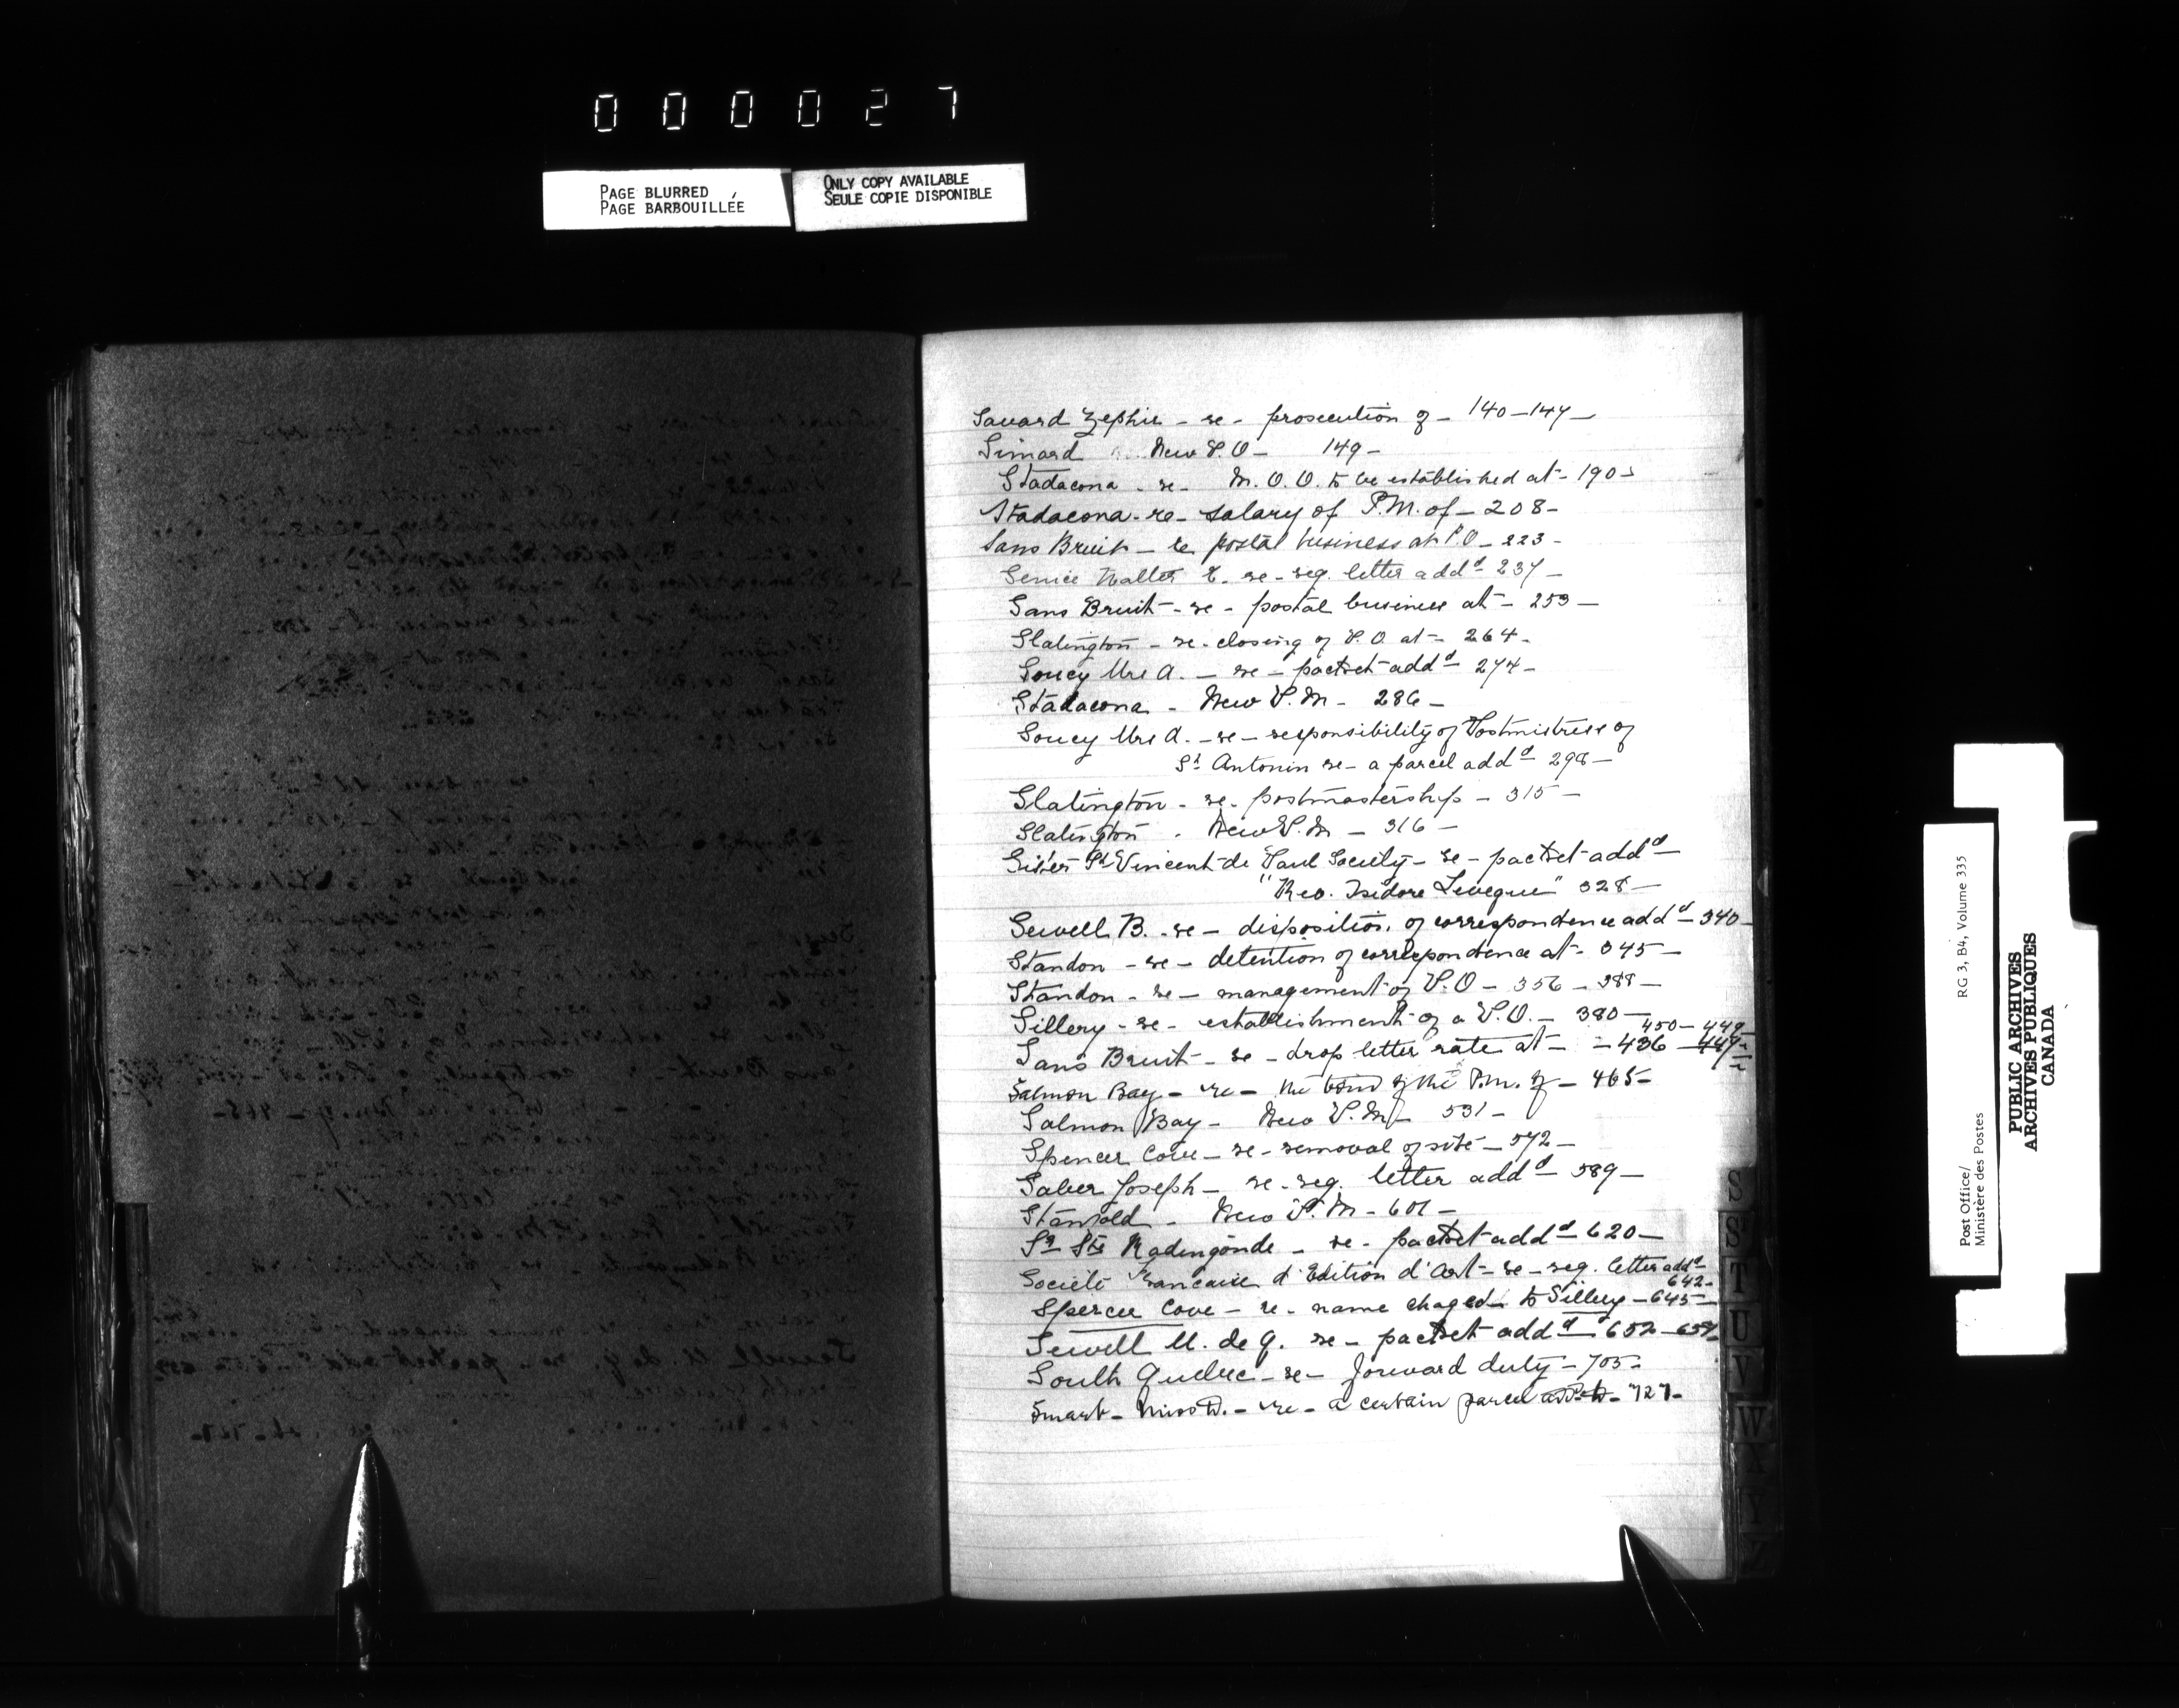 000027
PAGE BLURRED
PAGE BARBOUILLÉE
ONLY COPY AVAILABLE
SEULE COPIE DISPONIBLE
Savard Zephir - re - prosecution of - 140 - 147 -
Simard New P.O - 149 -
Stadacona - re - M.O.O. to be established at - 190 -
Stadacona - re - salary of P.M. of - 208 -
Sans Bruit - re postal business at P.O - 223 -
Senice Walter E. re - reg. letter addd 237 -
Sans Bruit - re - postal business at - 253 -
Slatington - re - closing of P.O. at - 264 -
Soucy Mrs A. - re - packet addd 274 -
Stadacona - New P.M - 286 -
Soucy Mrs A. - re - responsibility of Postmistress of
St Antonin re - a parcel addd 298 -
Slatington - re - postmastership - 315 -
Slatington - New P.M - 316 -
Sister St Vincent de Paul Society - re - packet addd
"Rev. Isidore Levegue" 328 -
Sewell B. - re - disposition of correspondence addd 340 -
Standon - re - detention of correspondence at - 345 -
Standon - re - management of P.O - 356 - 388 -
Sillery - re - establishment of a P.O. - 380 -
450 - 449 -
Sans Bruit - re - drop letter rate at - 436 - 447 -
Salmon Bay - re - the bond of the P.M. of - 465 -
Salmon Bay - New P.M - 531 -
Spencer Cove - re - removal of site - 572 -
Saber Joseph - re - reg. letter addd 589 -
Stanfold - New P.M - 601 -
Sr Ste Radengonde - re - packet addd 620 -
Societé Francaise d'Edition d'Art - re - reg. letter addd
642 -
Spencer Cove - re - name chaged to Sillery - 645 -
Sewell M. de Q. re - packet addd 652 - 657 -
South Quebec - re - forward duty - 705 -
Smart - Miss D. - re - a certain parcel - 727 -
S
ST
T
U
V
W
X
Y
Z
Post Office/
Ministère des Postes
RG 3, B4, Volume 335
PUBLIC ARCHIVES
ARCHIVES PUBLIQUES
CANADA